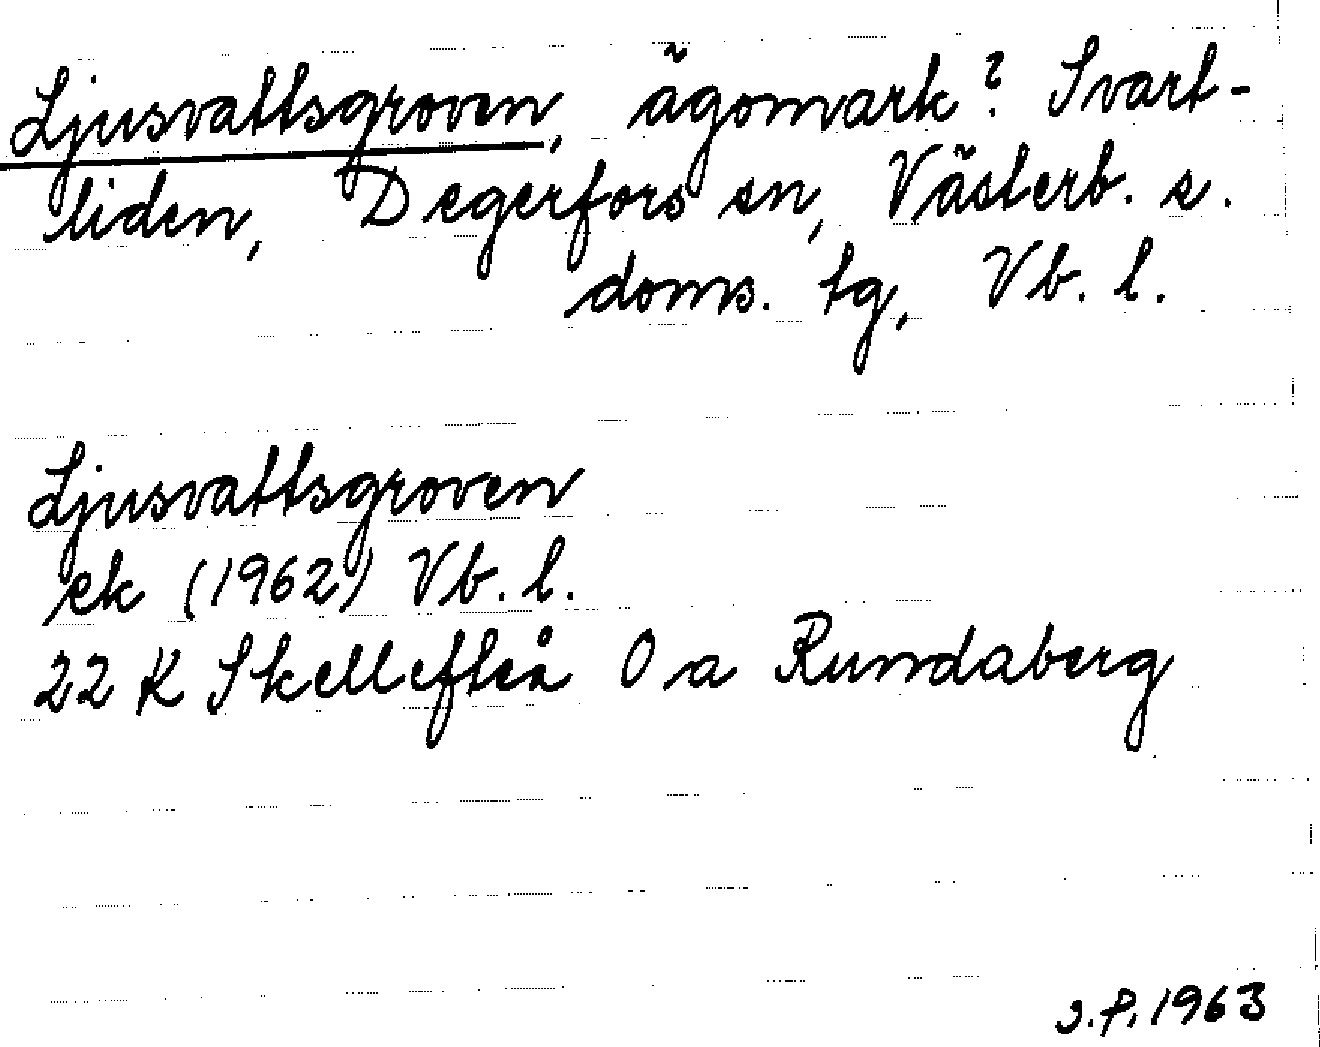 Ljusvattsgroven, ägomark? Svart-
liden, Degerfors sn, Västerb. s.
doms. tg, Vb. l.
Ljusvattsgroven
ek (1962) Vb. l.
22 K Skellefteå 0 a Rundaberg
J.P. 1963